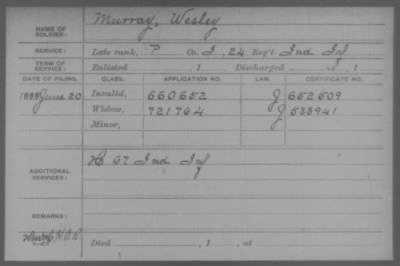 NAME OF SOLDIER: Murray, Wesley
SERVICE: Late rank, P Co. I, 24 Reg't Ind Inf
TERM OF SERVICE: Enlisted , 1 Discharged , 1
DATE OF FILING. CLASS. APPLICATION NO. LAW. CERTIFICATE NO.
1888 June 20 Invalid, 660652 J 652509
Widow, 721764 J 533941
Minor,
ADDITIONAL SERVICES: H 67 Ind Inf
REMARKS:
Died , 1 , at